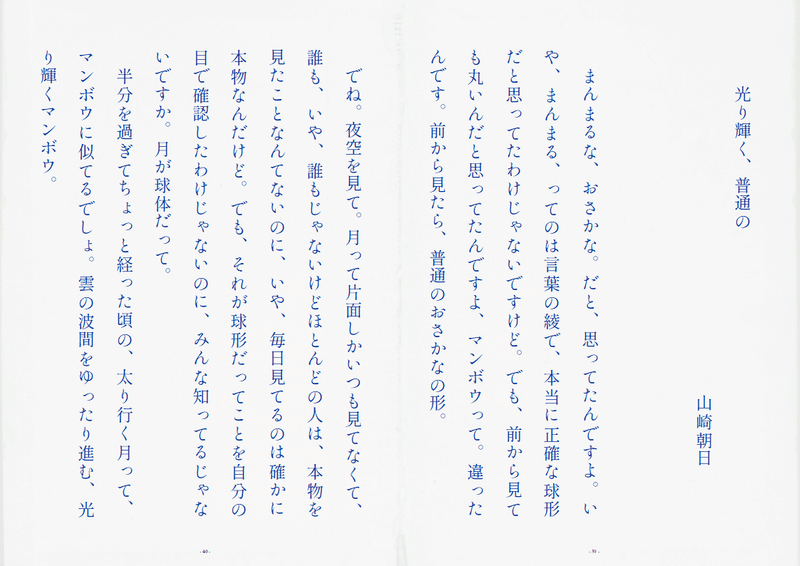 光り輝く、普通の
山崎朝日
まんまるな、おさかな。だと、思ってたんですよ。い
や、まんまる、ってのは言葉の綾で、本当に正確な球形
だと思ってたわけじゃないですけど。でも、前から見て
も丸いんだと思ってたんですよ、マンボウって。違った
んです。前から見たら、普通のおさかなの形。
- 39 -
でね。夜空を見て。月って片面しかいつも見てなくて、
誰も、いや、誰もじゃないけどほとんどの人は、本物を
見たことなんてないのに、いや、毎日見てるのは確かに
本物なんだけど。でも、それが球形だってことを自分の
目で確認したわけじゃないのに、みんな知ってるじゃな
いですか。月が球体だって。
半分を過ぎてちょっと経った頃の、太り行く月って、
マンボウに似てるでしょ。雲の波間をゆったり進む、光
り輝くマンボウ。
- 40 -